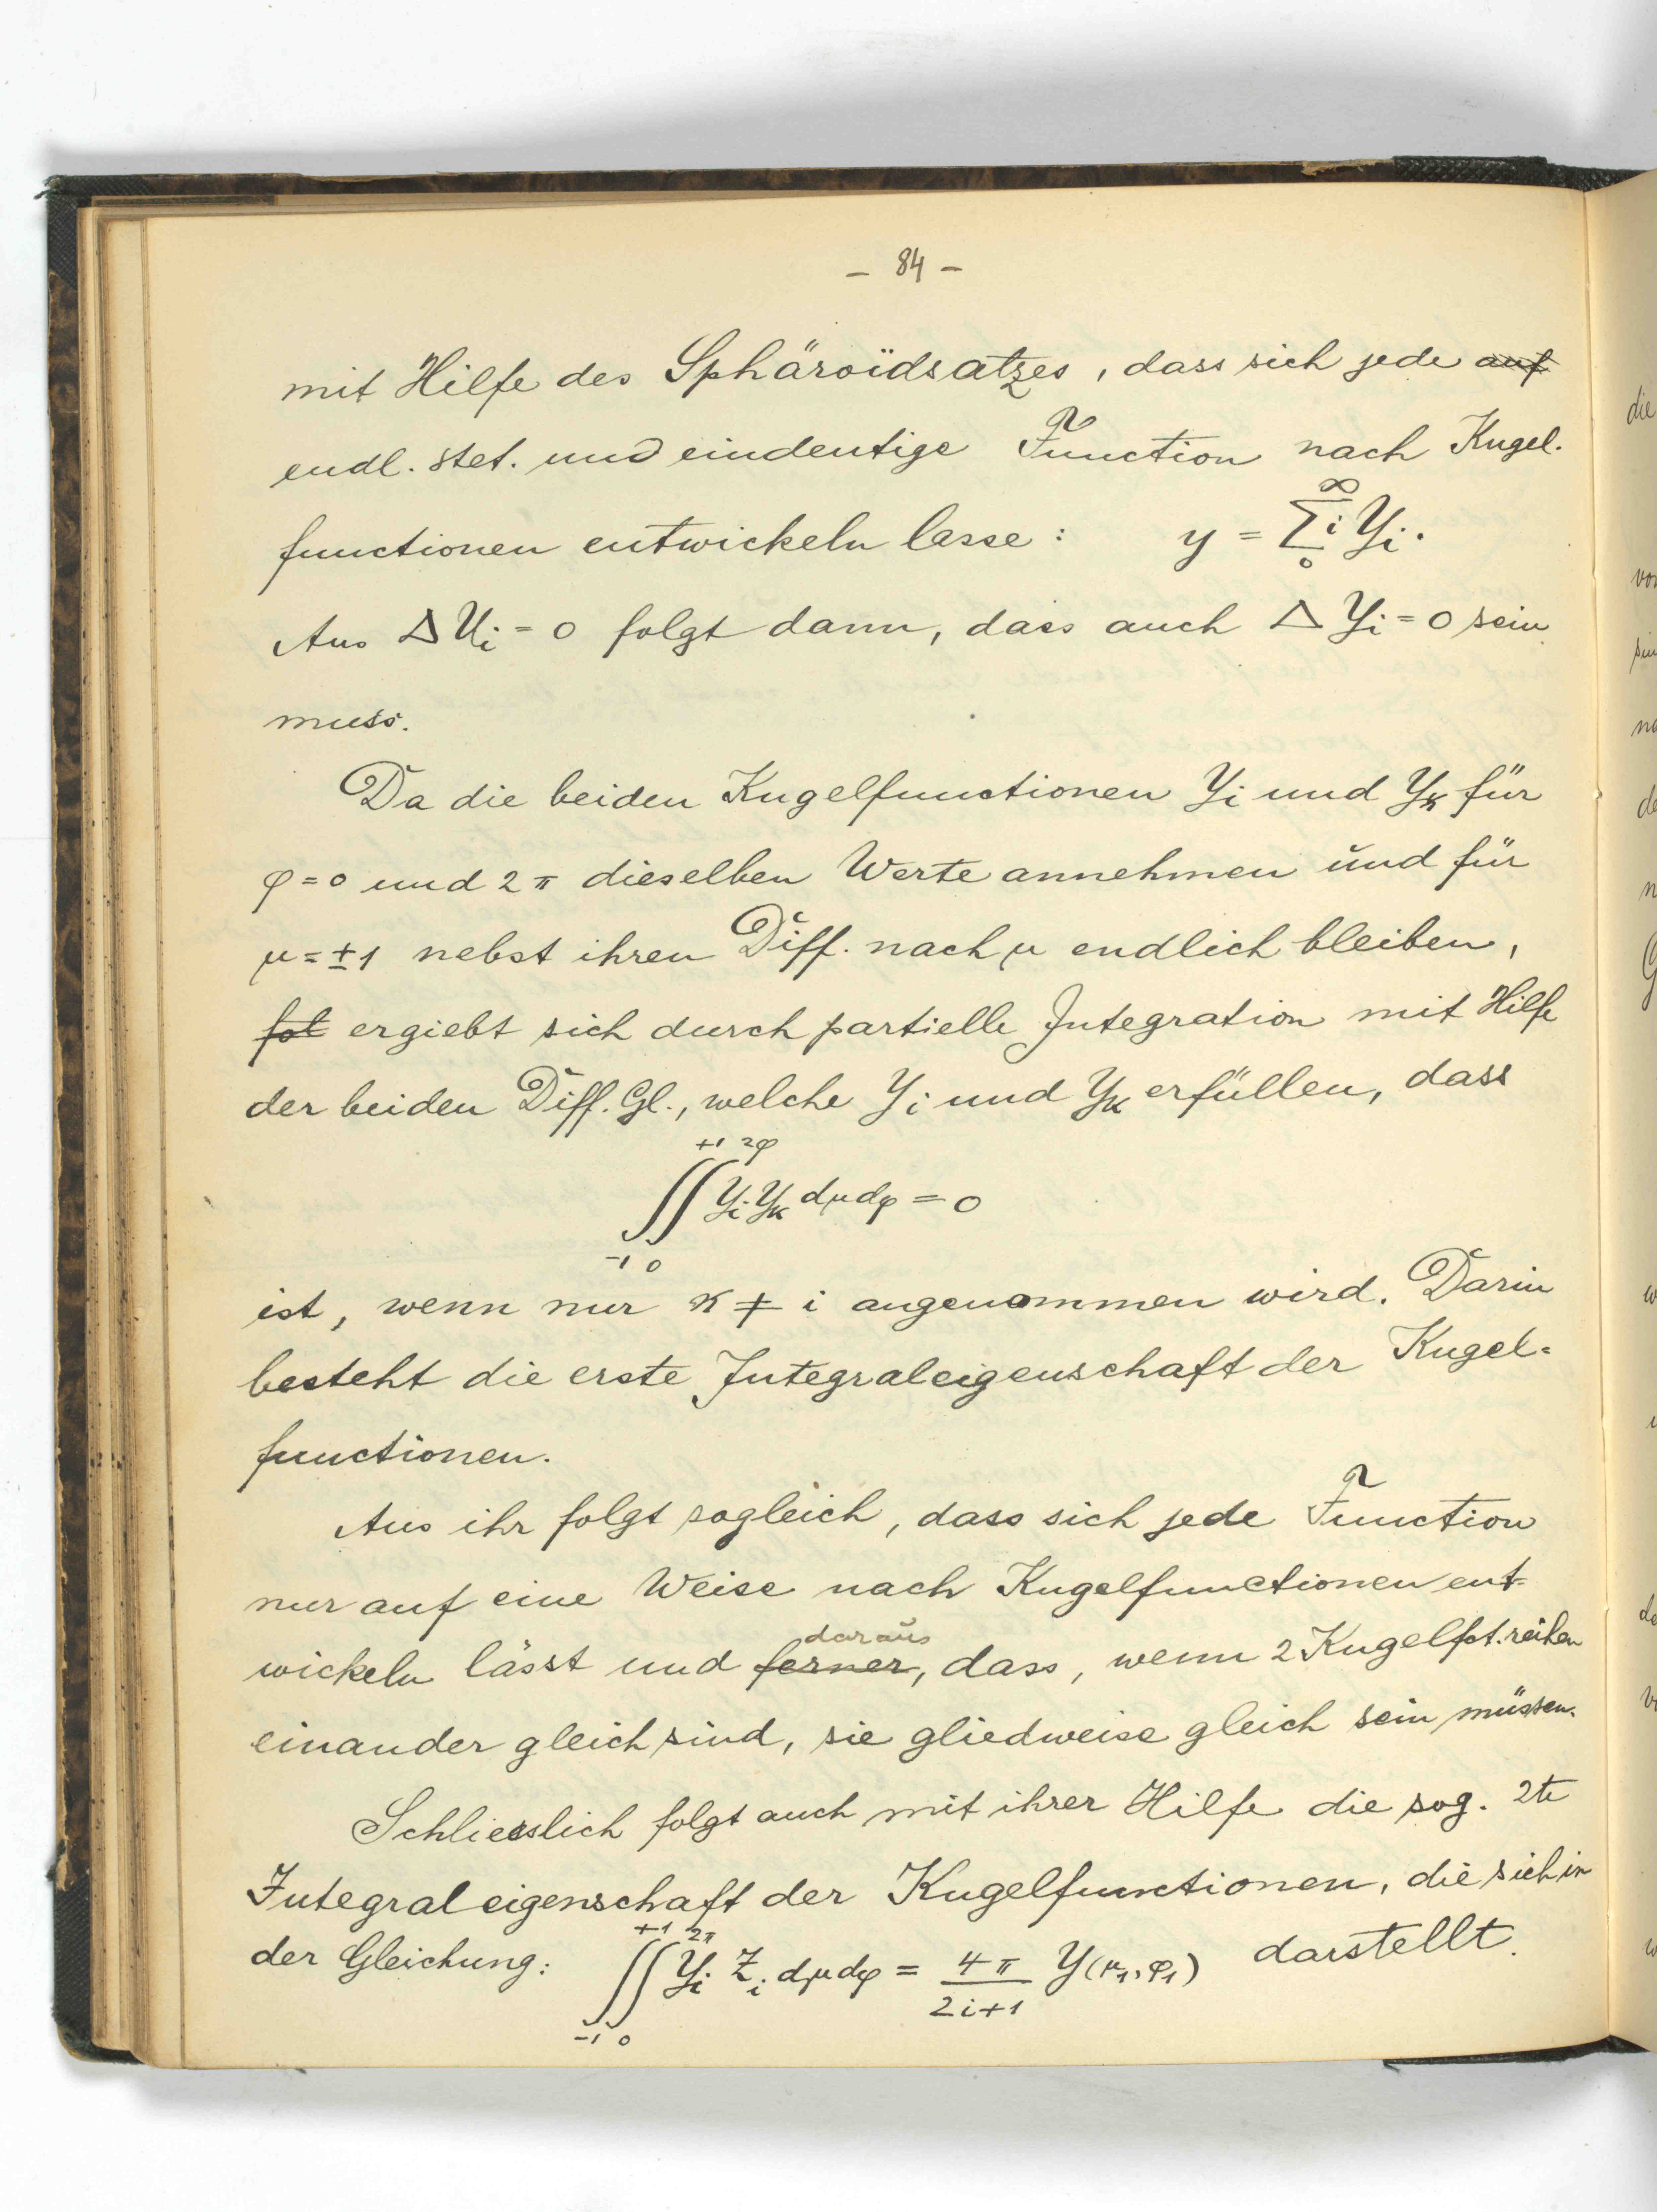 – 84 –
mit Hilfe des Sphäroïdsatzes, dass sich jede auf
endl. stet. und eindeutige Function nach Kugel-
functionen entwickeln lasse: y = ∑_0^∞ i Y_i.
Aus Δ U_i = 0 folgt dann, dass auch Δ Y_i = 0 sein
muss.
Da die beiden Kugelfunctionen Y_i und Y_κ für
φ = 0 und 2π dieselben Werte annehmen und für
μ = ±1 nebst ihren Diff. nach μ endlich bleiben,
fol ergiebt sich durch partielle Integration mit Hilfe
der beiden Diff. Gl., welche Y_i und Y_κ erfüllen, dass
∫_{-1}^{+1} ∫_0^{2φ} Y_i Y_κ dμ dφ = 0
ist, wenn nur κ ≠ i angenommen wird. Darin
besteht die erste Integraleigenschaft der Kugel-
functionen.
Aus ihr folgt sogleich, dass sich jede Function
nur auf eine Weise nach Kugelfunctionen ent-
daraus
wickeln lässt und ferner, dass, wenn 2 Kugelfct. reihen
einander gleich sind, sie gliedweise gleich sein müssen.
Schliesslich folgt auch mit ihrer Hilfe die sog. 2te
Integraleigenschaft der Kugelfunctionen, die sich in
der Gleichung: ∫_{-1}^{+1} ∫_0^{2π} Y_i Z_i dμ dφ = 4π/(2i+1) Y(μ_1, φ_1) darstellt.
die